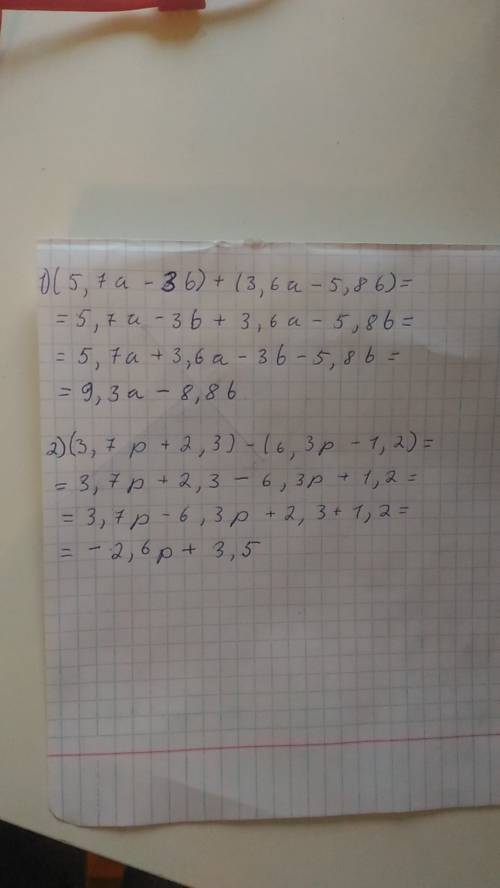 1) (5,7a - 3b) + (3,6a - 5,8b) =
= 5,7a - 3b + 3,6a - 5,8b =
= 5,7a + 3,6a - 3b - 5,8b =
= 9,3a - 8,8b
2) (3,7p + 2,3) - (6,3p - 1,2) =
= 3,7p + 2,3 - 6,3p + 1,2 =
= 3,7p - 6,3p + 2,3 + 1,2 =
= - 2,6p + 3,5